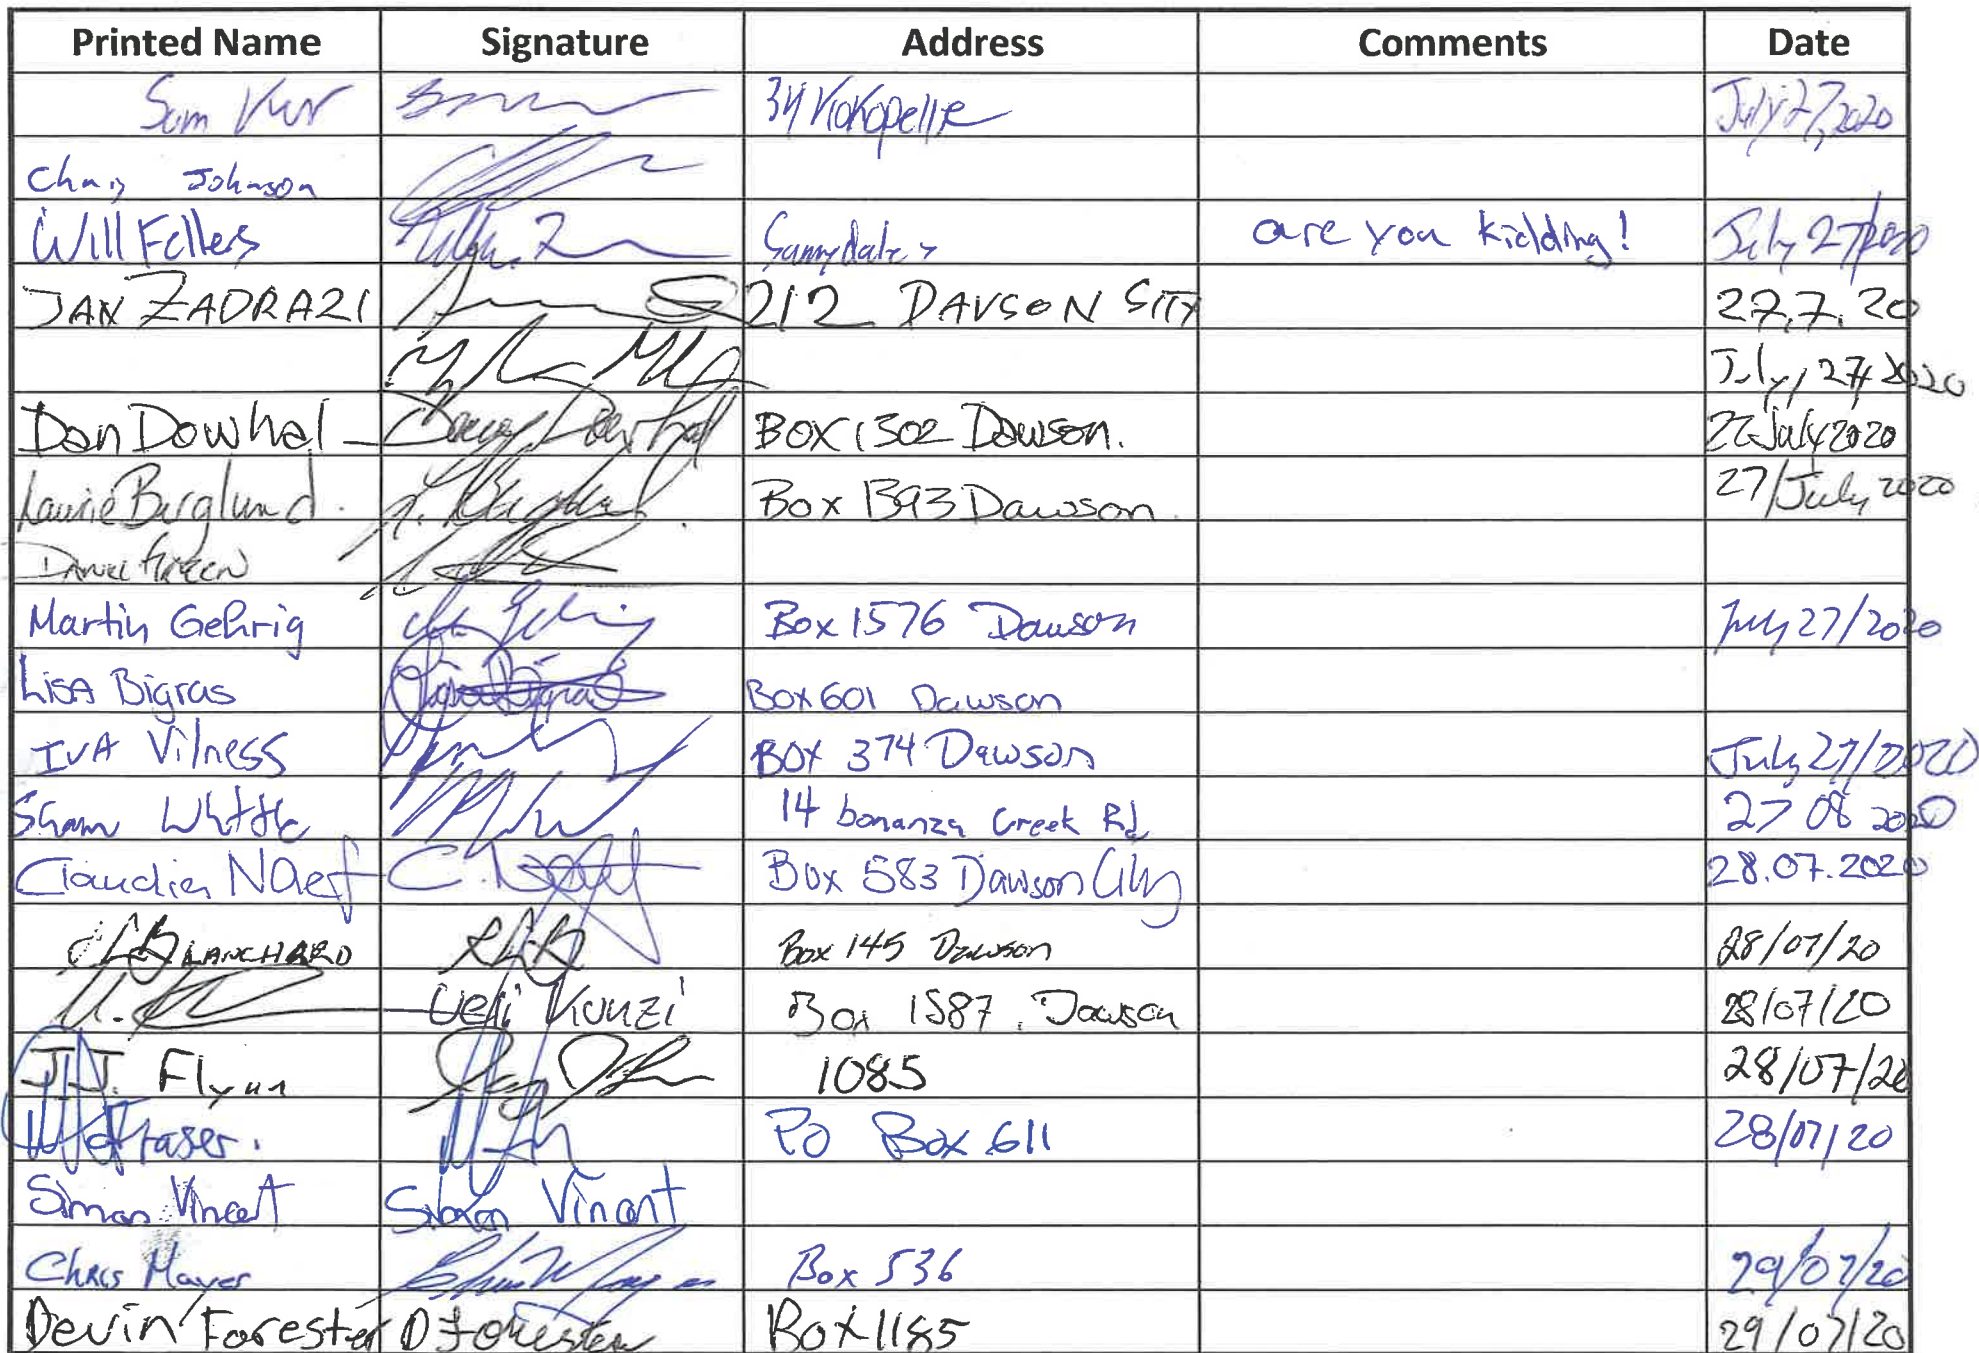 Printed Name Signature Address Comments Date
Sam 34 Kokopelle July 27, 2020
Johnson
Will Fellers Sunnydale are you kidding! July 27/2020
JAN ZADRAZI 212 DAVSON SITY 27.7.20
July, 27/2020
Dan Dowhal Box 1302 Dawson. 27 July 2020
Laurie Berglund. L. Berglund. Box 1393 Dawson 27/July 2020
Daniel Green
Martin Gehrig Box 1576 Dawson July 27/2020
Lisa Bigras Lisa Bigras Box 601 Dawson
IVA Vilness Box 374 Dawson July 27/2020
14 bonanza Creek Rd 27 08 2020
Claudia Naef C. Naef Box 583 Dawson City 28.07.2020
BLANCHARD Box 145 Dawson 28/07/20
Ueli Kunzi Box 1587 Dawson 28/07/20
J.J. Flynn 1085 28/07/20
Fraser. PO Box 611 28/07/20
Simon Vincent Simon Vincent
Chris Mayer Box 536 29/07/20
Devin Forester D Forester Box 1185 29/07/20